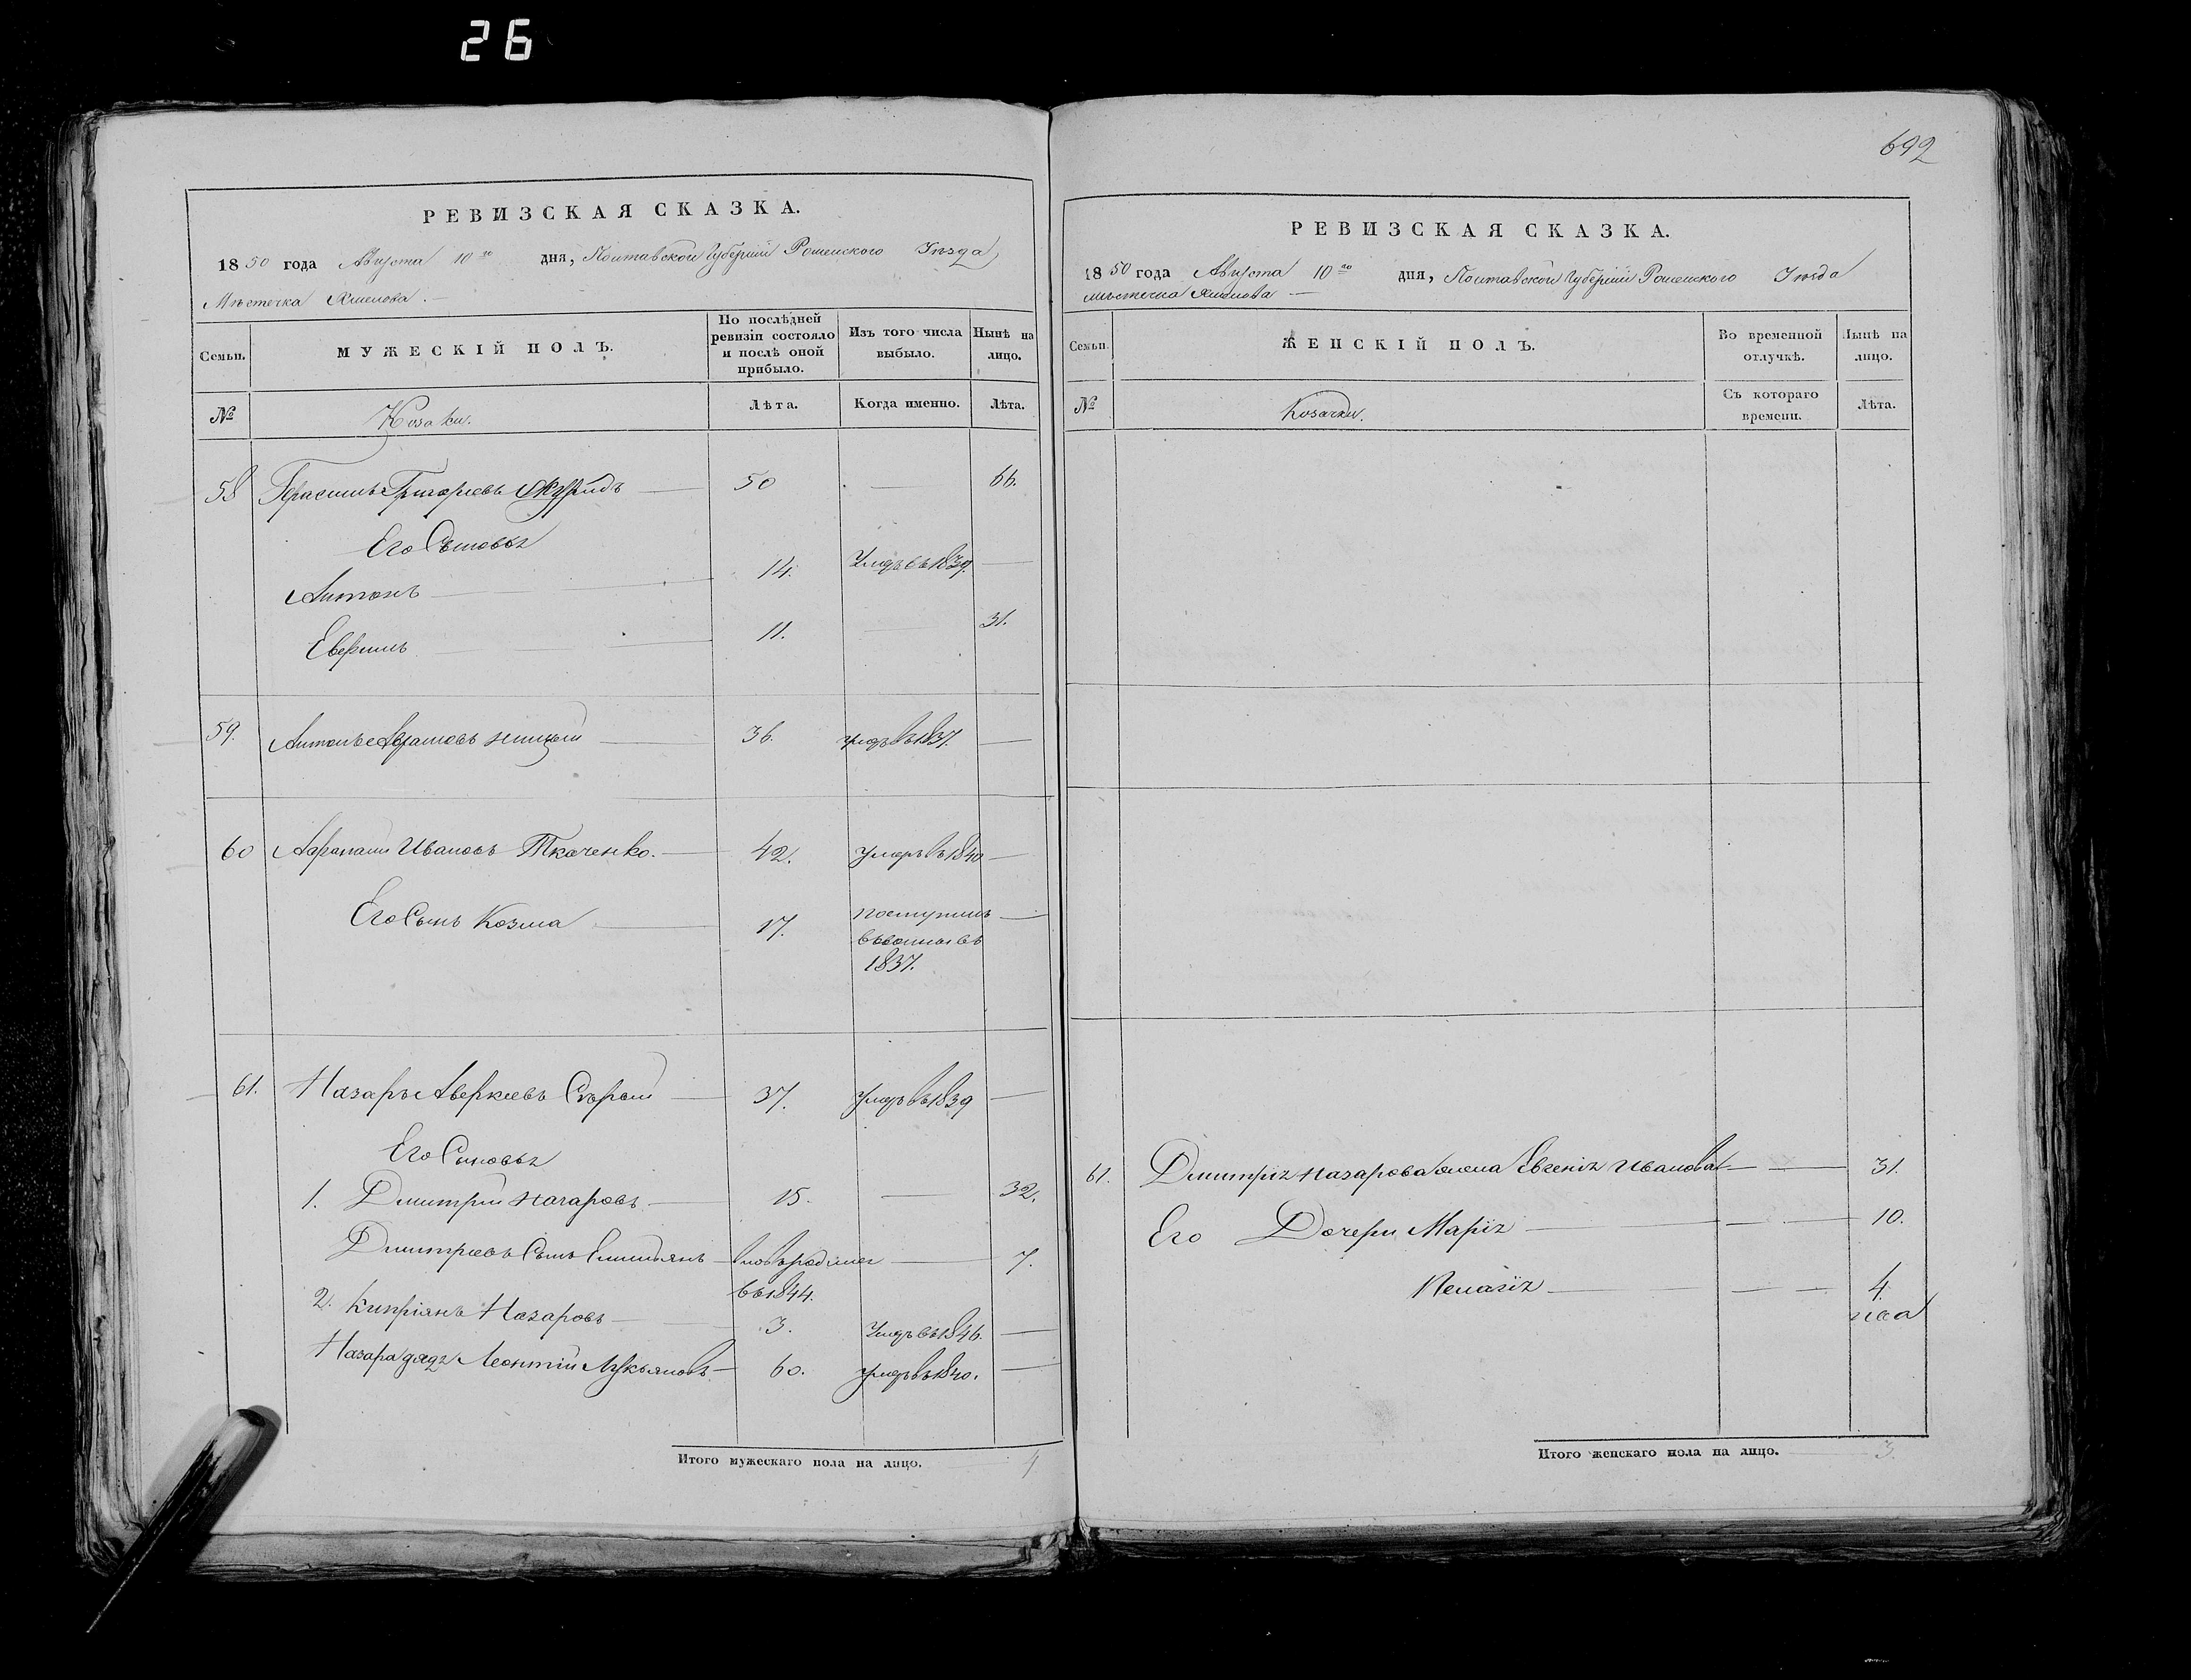 26
692
РЕВИЗСКАЯ СКАЗКА.
1850 года Августа 10го дня, Полтавской Губернiи Роменского Уѣзда
Мѣстечка
Семьи.
МУЖЕСКІЙ ПОЛЪ.
По послѣдней ревизіи состояло и послѣ оной прибыло.
Изъ того числа выбыло.
Нынѣ на лицо.
№
Козаки.
Лѣта.
Когда именно.
Лѣта.
58 Герасимъ Григорьевъ 50 — 66.
Его Сыновья
Антонъ — 14. Умеръ въ 1839. —
11. — 31.
59. Антонъ Аврамовъ 36. умеръ въ 1837. —
60 Ивановъ Ткаченко. — 42. умеръ въ 1840 —
Его Сынъ Козма — 17. поступилъ —
въ
1837.
61. Назаръ Аверкіевъ Сѣрый — 37. умеръ въ 1839 —
Его Сыновья
1. Дмитрій Назаровъ — 15. — 32.
Дмитріевъ Сынъ Емильянъ — вновърод — 7.
въ 1844.
2. Кипріянъ Назаровъ — 3. Умеръ въ 1846. —
Назара дядя Леонтій Лукьяновъ — 60. умеръ въ 1840. —
Итого мужескаго пола на лицо. 4
РЕВИЗСКАЯ СКАЗКА.
1850 года Августа 10го дня, Полтавской Губернiи Роменского Уѣзда
мѣстечка
Семьи.
ЖЕНСКІЙ ПОЛЪ.
Во временной отлучкѣ.
Нынѣ на лицо.
№
Козачки.
Съ котораго времени.
Лѣта.
61. Дмитрія Назарова жена Евгенія Иванова — — 31.
Его Дочери Марія — — 10.
Пелагія — — 4.
Итого женскаго пола на лицо. 3.